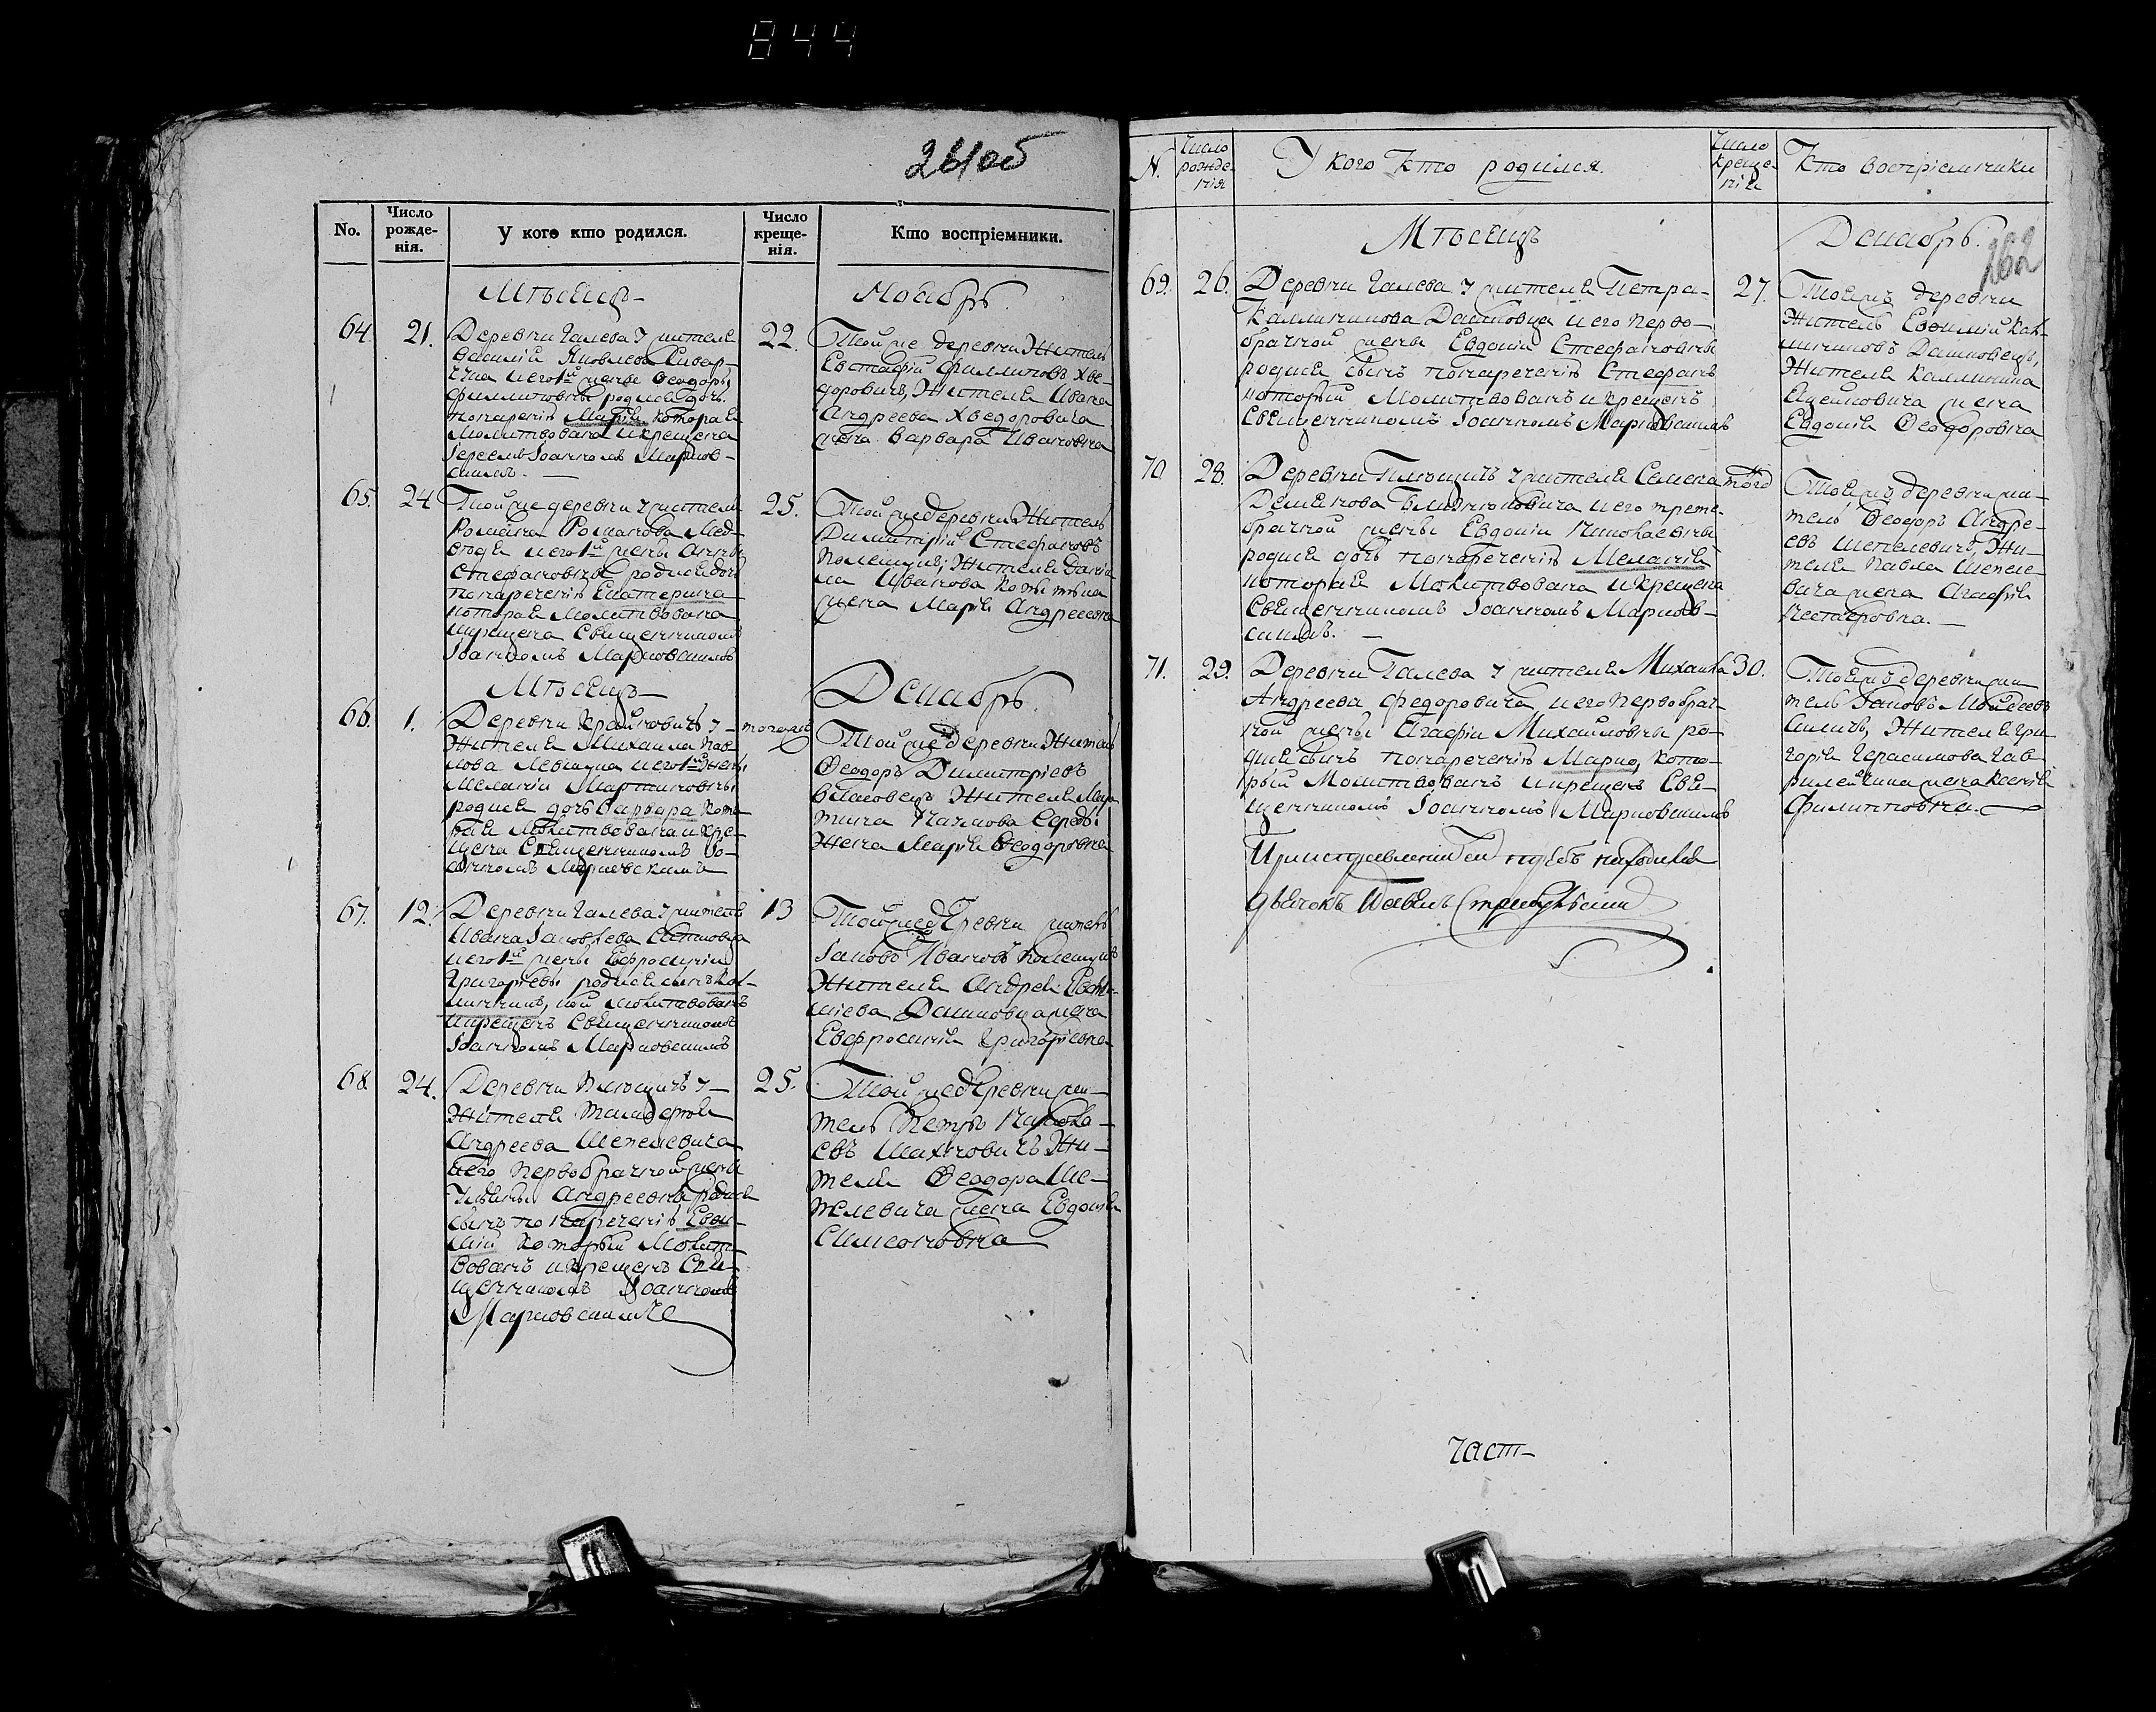 844
261об
No.
Число рожде-нія.
У кого кто родился.
Число креще-нія.
Кто воспріемники.
Мѣсецъ
Ноябрь.
64.
21.
Деревни Галева у жителя
Василій Яковлева
его 1й жены Феодоры
Филиповны родися дочь
Марія которая
Молитвована и крещена
Іереемъ Іоанномъ Марков-
скимъ.
22.
Той же деревни Житель
Евстафій Филиповъ Хве-
доровичъ, Жителя Ивана
Андреева Хведоровича
жена Варвара Ивановна
65.
24
Той же деревни у жителя
Романа Романова Мед-
ведя его 1й жены Анны
Стефановны родися дочь
понареченію Екатерина
которая молитвована
и крещена Священникомъ
Іоанномъ Марковскимъ
25.
Той же деревни Житель
Димитрій Стефановъ
Полещукъ, Жителя Даніи
ла Иванова
жена Марія Андреевна
Мѣсецъ
Декабрь.
66.
1.
Деревни у
Жителя Михаила Пав-
лова его 1й жены
Меланіи Мартиновны
родися дочь Варвара кото
рая Молитвована и кре-
щена Священникомъ Іо-
анномъ Марковскимъ
того же
Той же деревни Житель
Феодоръ Димитріевъ
Жителя Мар
тина
Жена Марія Феодоровна
67.
12.
Деревни Галева у жителя
Ивана Іаковлева
его 1й жены Ефросиніи
Григорьевы родися сынъ Кал-
линникъ, кой молитвованъ
и крещенъ Священникомъ
Іоанномъ Марковскимъ
13
Той же деревни житель
Іаковъ Ивановъ Полещукъ
Жителя Андрея Евфи-
міева Дашковца жена
Евфросинія Григоріевна
68
24.
Деревни у
Жителя
Андреева Шепелевича
его первобрачной жены
Андреевны родися
сынъ по нареченію Евфи-
мій который Молит-
вованъ и крещенъ Свя-
щенникомъ Іоанномъ
Марковскимъ
25.
Той же деревни жи-
тель Петръ Никола-
евъ Махновичъ Жи-
теля Феодора Ше-
пелевича жена Евдокія
Симеоновна
N.
Число рожде-нія
У кого кто родился.
Число креще-нія
Кто воспріемники
Мѣсецъ
Декабрь.
262
69.
26.
Деревни Галева у жителя Петра
Каллиникова Дашковца и его перво-
брачной жены Евдокіи Стефановны
родися сынъ понареченію Стефанъ
который Молитвованъ и крещенъ
Священникомъ Іоанномъ Марковскимъ
27.
Тоежъ деревни
Житель Евфимій Кал-
линиковъ Дашковецъ,
Жителя Каллиника
жена
Евдокія Феодоровна
70
28.
Деревни у жителя Семена
его трете-
брачной жены Евдокіи Николаевны
родися дочь понареченію Меланія
которая Молитвована и крещена
Священникомъ Іоанномъ Марков-
скимъ.
того
Тоежъ деревни жи-
тель Феодоръ Андре-
евъ Шепелевичъ, Жи-
теля Павла Шепеле-
вича жена Агафія
Нестеровна.
71.
29.
Деревни Галева у жителя Михаила
Андреева Федоровича, и его первобрач-
ной жены Агафіи Михайловны ро-
дися сынъ понареченію Марко, кото-
рый Молитвованъ и крещенъ Свя-
щенникомъ Іоанномъ Марковскимъ
30.
Тоежъ деревни жи
тель Іаковъ Мойсеевъ
Жителя Гри-
горія Герасимова Гав-
жена Ксенія
Филипповна.
При исправленіи сей требы находился
дьячокъ Павелъ
част-